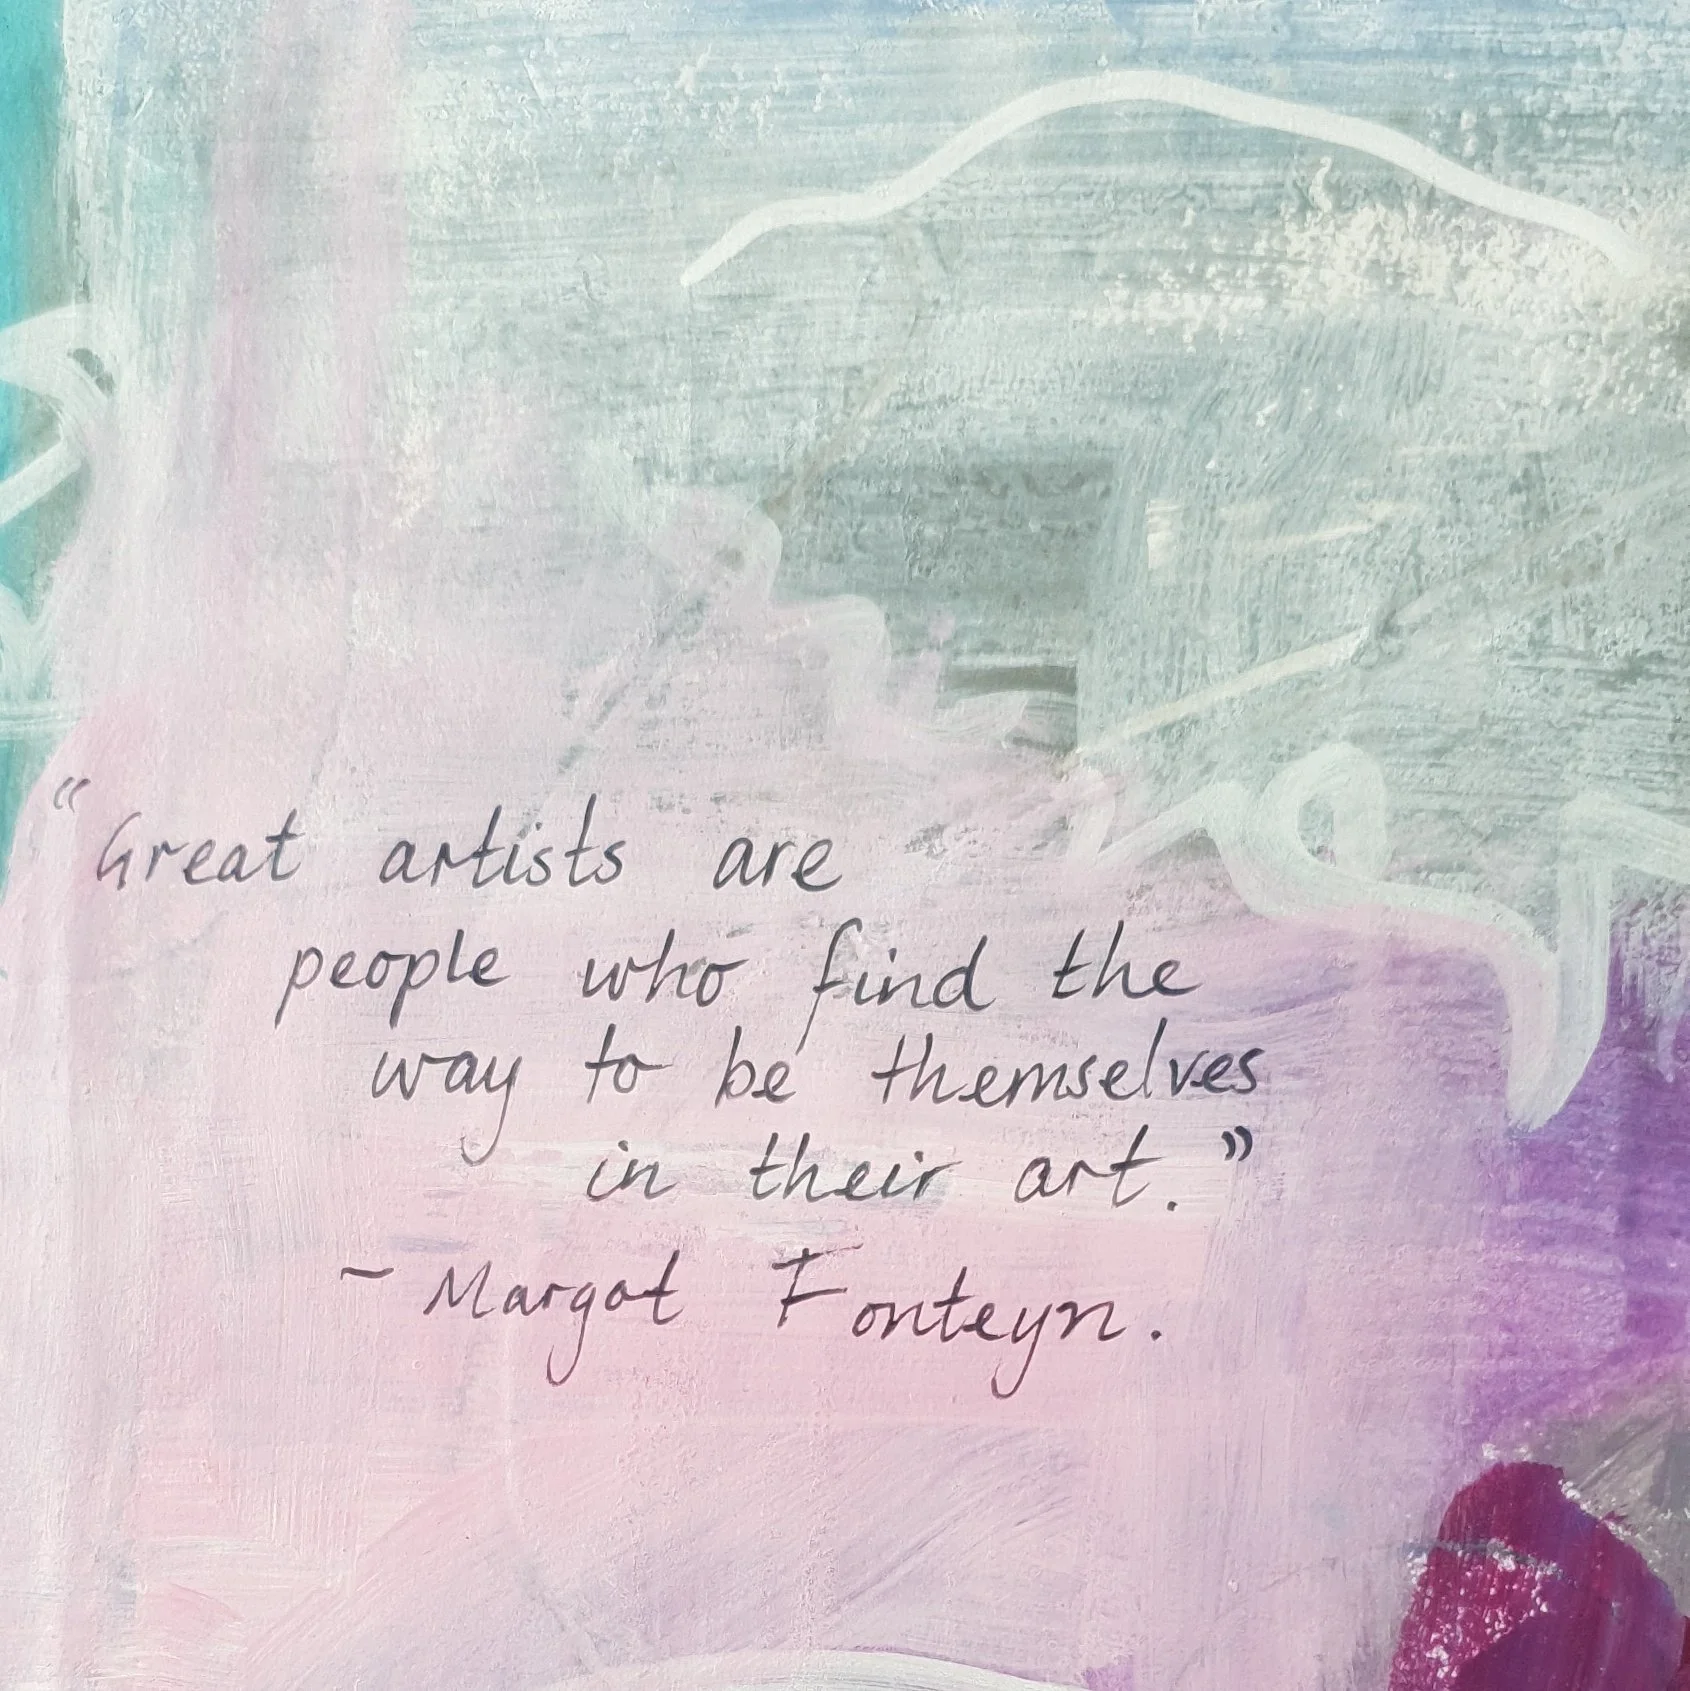 “Great artists are
people who find the
way to be themselves
in their art.”
~ Margot Fonteyn.